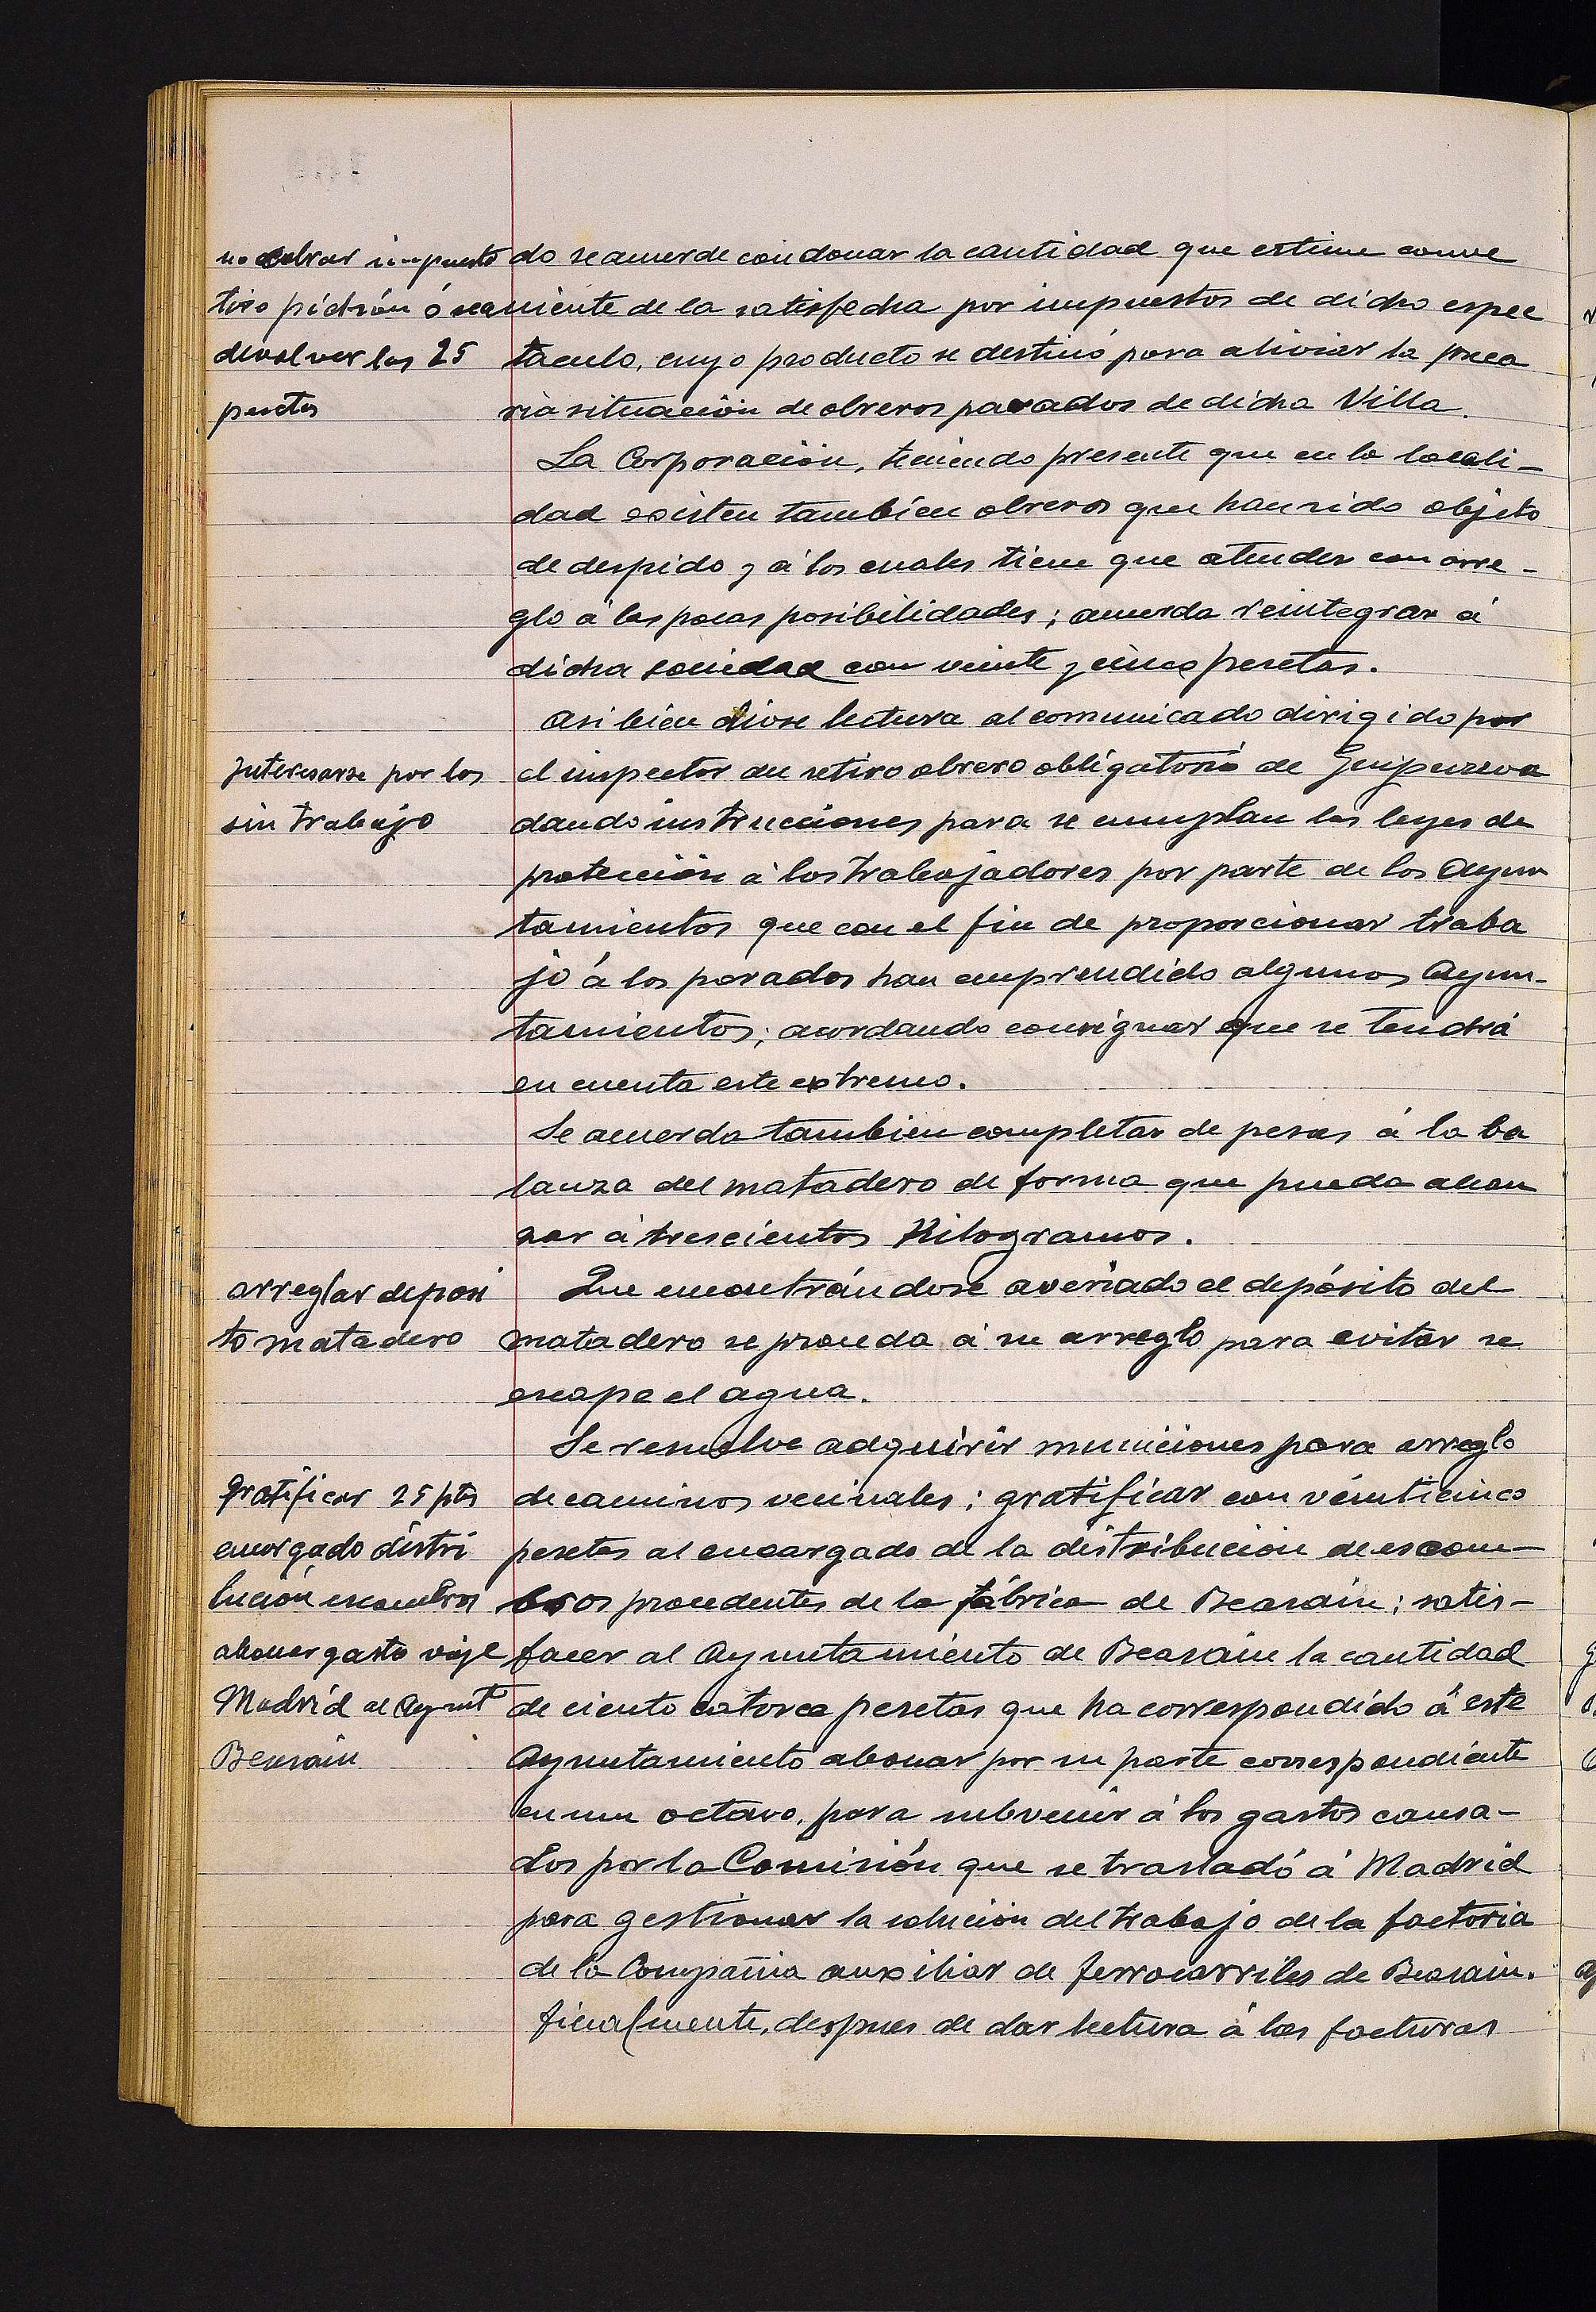 no cobrar impuesto
tiro pichón ó sea
devolver las 25
pesetas
do se acuerde condonar la cantidad que estime conve
niente de la satisfecha por impuestos de dicho espec
táculo, cuyo producto se destinó para aliviar la preca
ria situación de obreros parados de dicha Villa.
La Corporación, teniendo presente que en la locali-
dad existen también obreros que han sido objeto
de despido y á los cuales tiene que atender con arre-
glo á las pocas posibilidades; acuerda reintegrar á
dicha sociedad con veinte y cinco pesetas.
Interesarse por los
sin trabajo
Asi bien dióse lectura al comunicado dirigido por
el inspector del retiro obrero obligatorio de Guipuzcoa
dando instrucciones para se cumplan las leyes de
protección á los trabajadores por parte de los Ayun
tamientos que con el fin de proporcionar traba
jo á los parados han emprendido algunos Ayun-
tamientos; acordando consignar que se tendrá
en cuenta este extremo.
Se acuerda tambien completar de pesas á la ba
lanza del matadero de forma que pueda alcan
zar á trescientos Kilogramos.
arreglar deposi
to matadero
Que encontrándose averiado el depósito del
matadero se proceda á su arreglo para evitar se
escape el agua.
Gratificar 25 pts
encargado distri
bución escombros
abonar gasto viaje
Madrid al Aynt
Beasain
Se resuelve adquirir municiones para arreglo
de caminos vecinales; gratificar con veinticinco
pesetas al encargado de la distribución de escom-
bros procedentes de la fábrica de Beasain; satis-
facer al Ayuntamiento de Beasain la cantidad
de ciento catorce pesetas que ha correspondido á este
Ayuntamiento abonar por su parte correspondiente
en un octavo, para subvenir á los gastos causa-
dos por la Comisión que se trasladó á Madrid
para gestionar la solución del trabajo de la factoria
de la Compañia auxiliar de ferrocarriles de Beasain.
Finalmente, despues de dar lectura á las facturas